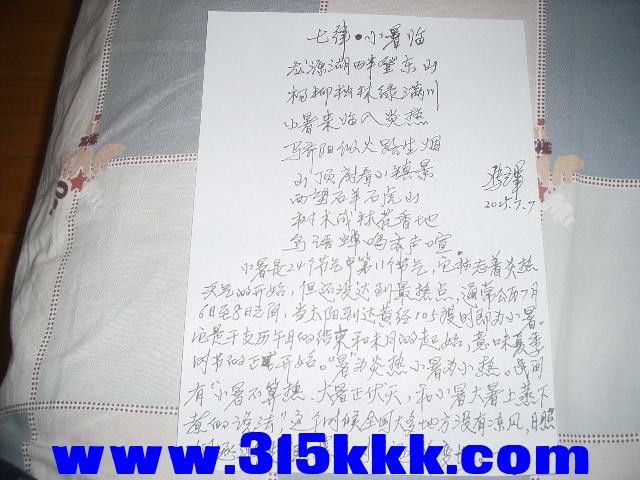 七律•小暑临
龙源湖畔登东山
杨柳松林绿满川
小暑来临入炎热
骄阳似火路生烟
山顶俯看小镇景
西望石羊石虎山
树木成林花香地
鸟语蝉鸣声喧
2025.7.7
小暑是24个节气中第11个节气,它标志着炎热
天气的开始,但还没达到最热点,通常公历7月
6日至8日之间,当太阳到达黄经105度时即为小暑。
它是干支历午月的结束和未月的起始,意味夏季
时节的正式开始。"暑"为炎热小暑为小热。民间
有"小暑不算热,大暑正伏天,和小暑大暑上蒸下
煮的说法"这个时候全国大多地方没有凉风,日照
www.315kkk.com